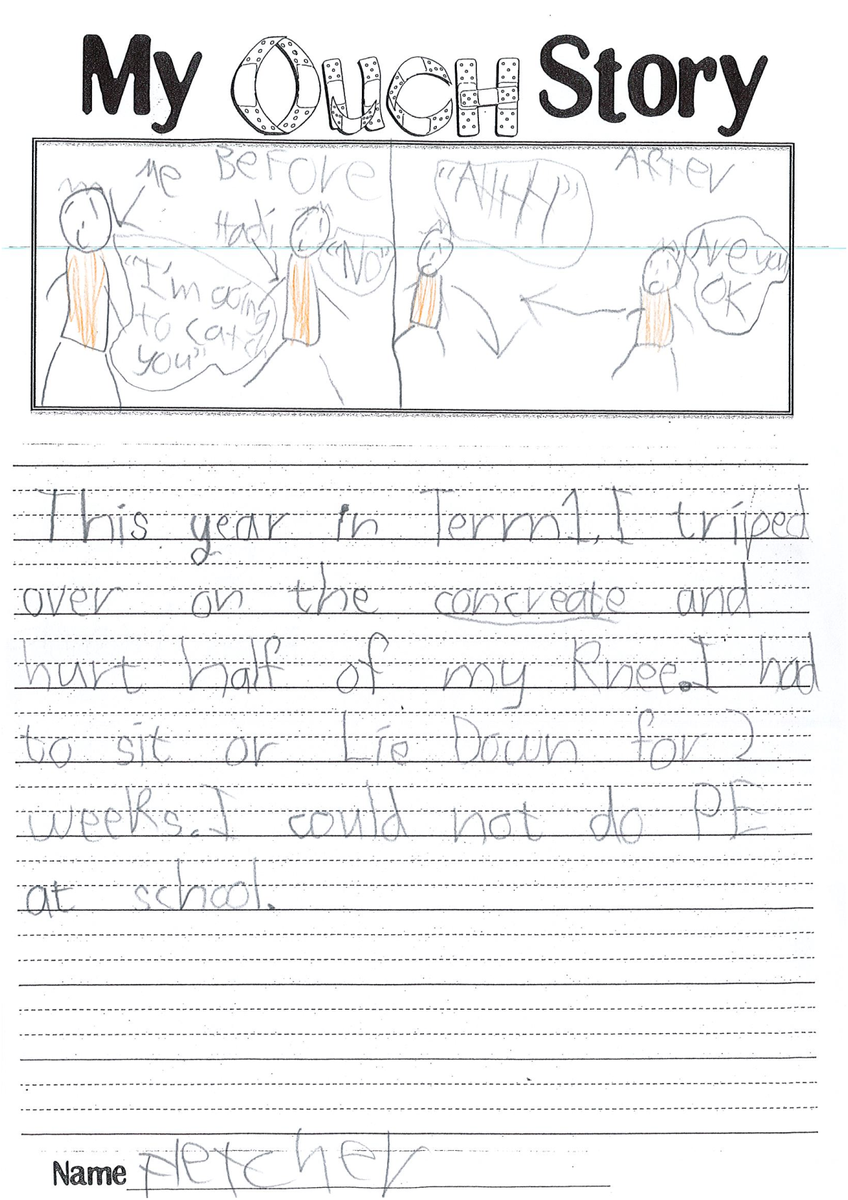 My OUCH Story
Me Before
Hadi
"I'm going
to catch
you"
"No"
After
"AHHH"
Are you
OK
This year in Term 1, I triped
over on the concreate and
hurt half of my Knee. I had
to sit or Lie Down for 2
weeks. I could not do PE
at school.
Name Fletcher